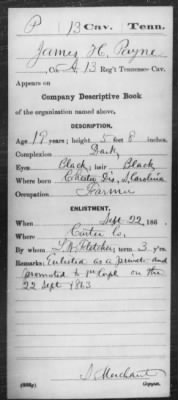 P | 13 Cav. | Tenn.
James H. Payne
, Co. A, 13 Reg't Tennessee Cav.
Appears on
Company Descriptive Book
of the organization named above.
DESCRIPTION.
Age 19 years; height 5 feet 8 inches.
Complexion Dark
Eyes Black; hair Black
Where born Chester Dis, S. Carolina
Occupation Farmer
ENLISTMENT.
When Sept. 22, 186 .
Where Carter Co.
By whom S. W. Fletcher; term 3 y'rs.
Remarks: Enlisted as a private and
promoted to 1st Corpl on the
22 Sept 1863
S. Merchant
Copyist.